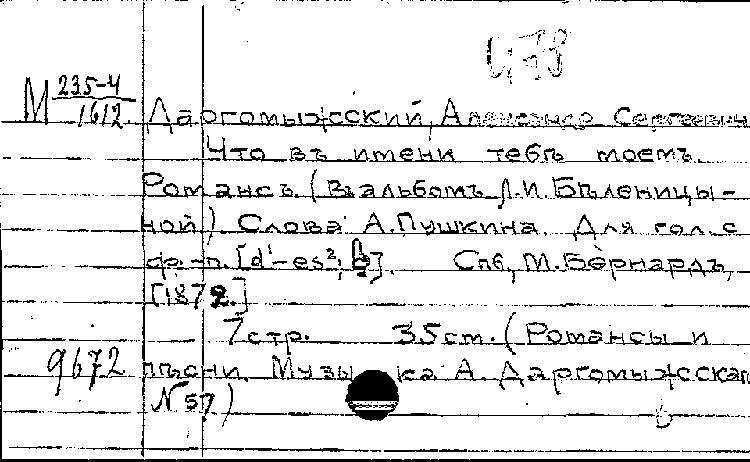 Ц78
М 235-4
1612. Даргомыжский, Александр Сергеевич
Что въ имени тебѣ моемъ.
Романсъ. (В альбомъ Л.И. Бѣленицы-
ной) Слова А. Пушкина. Для гол. с
ф.-п. [d¹-es²; b]. Спб, М. Бернардъ,
[1872.]
7 стр. 35 cm. (Романсы и
9672 пѣсни. Музыка А. Даргомыжскаг
N 57)